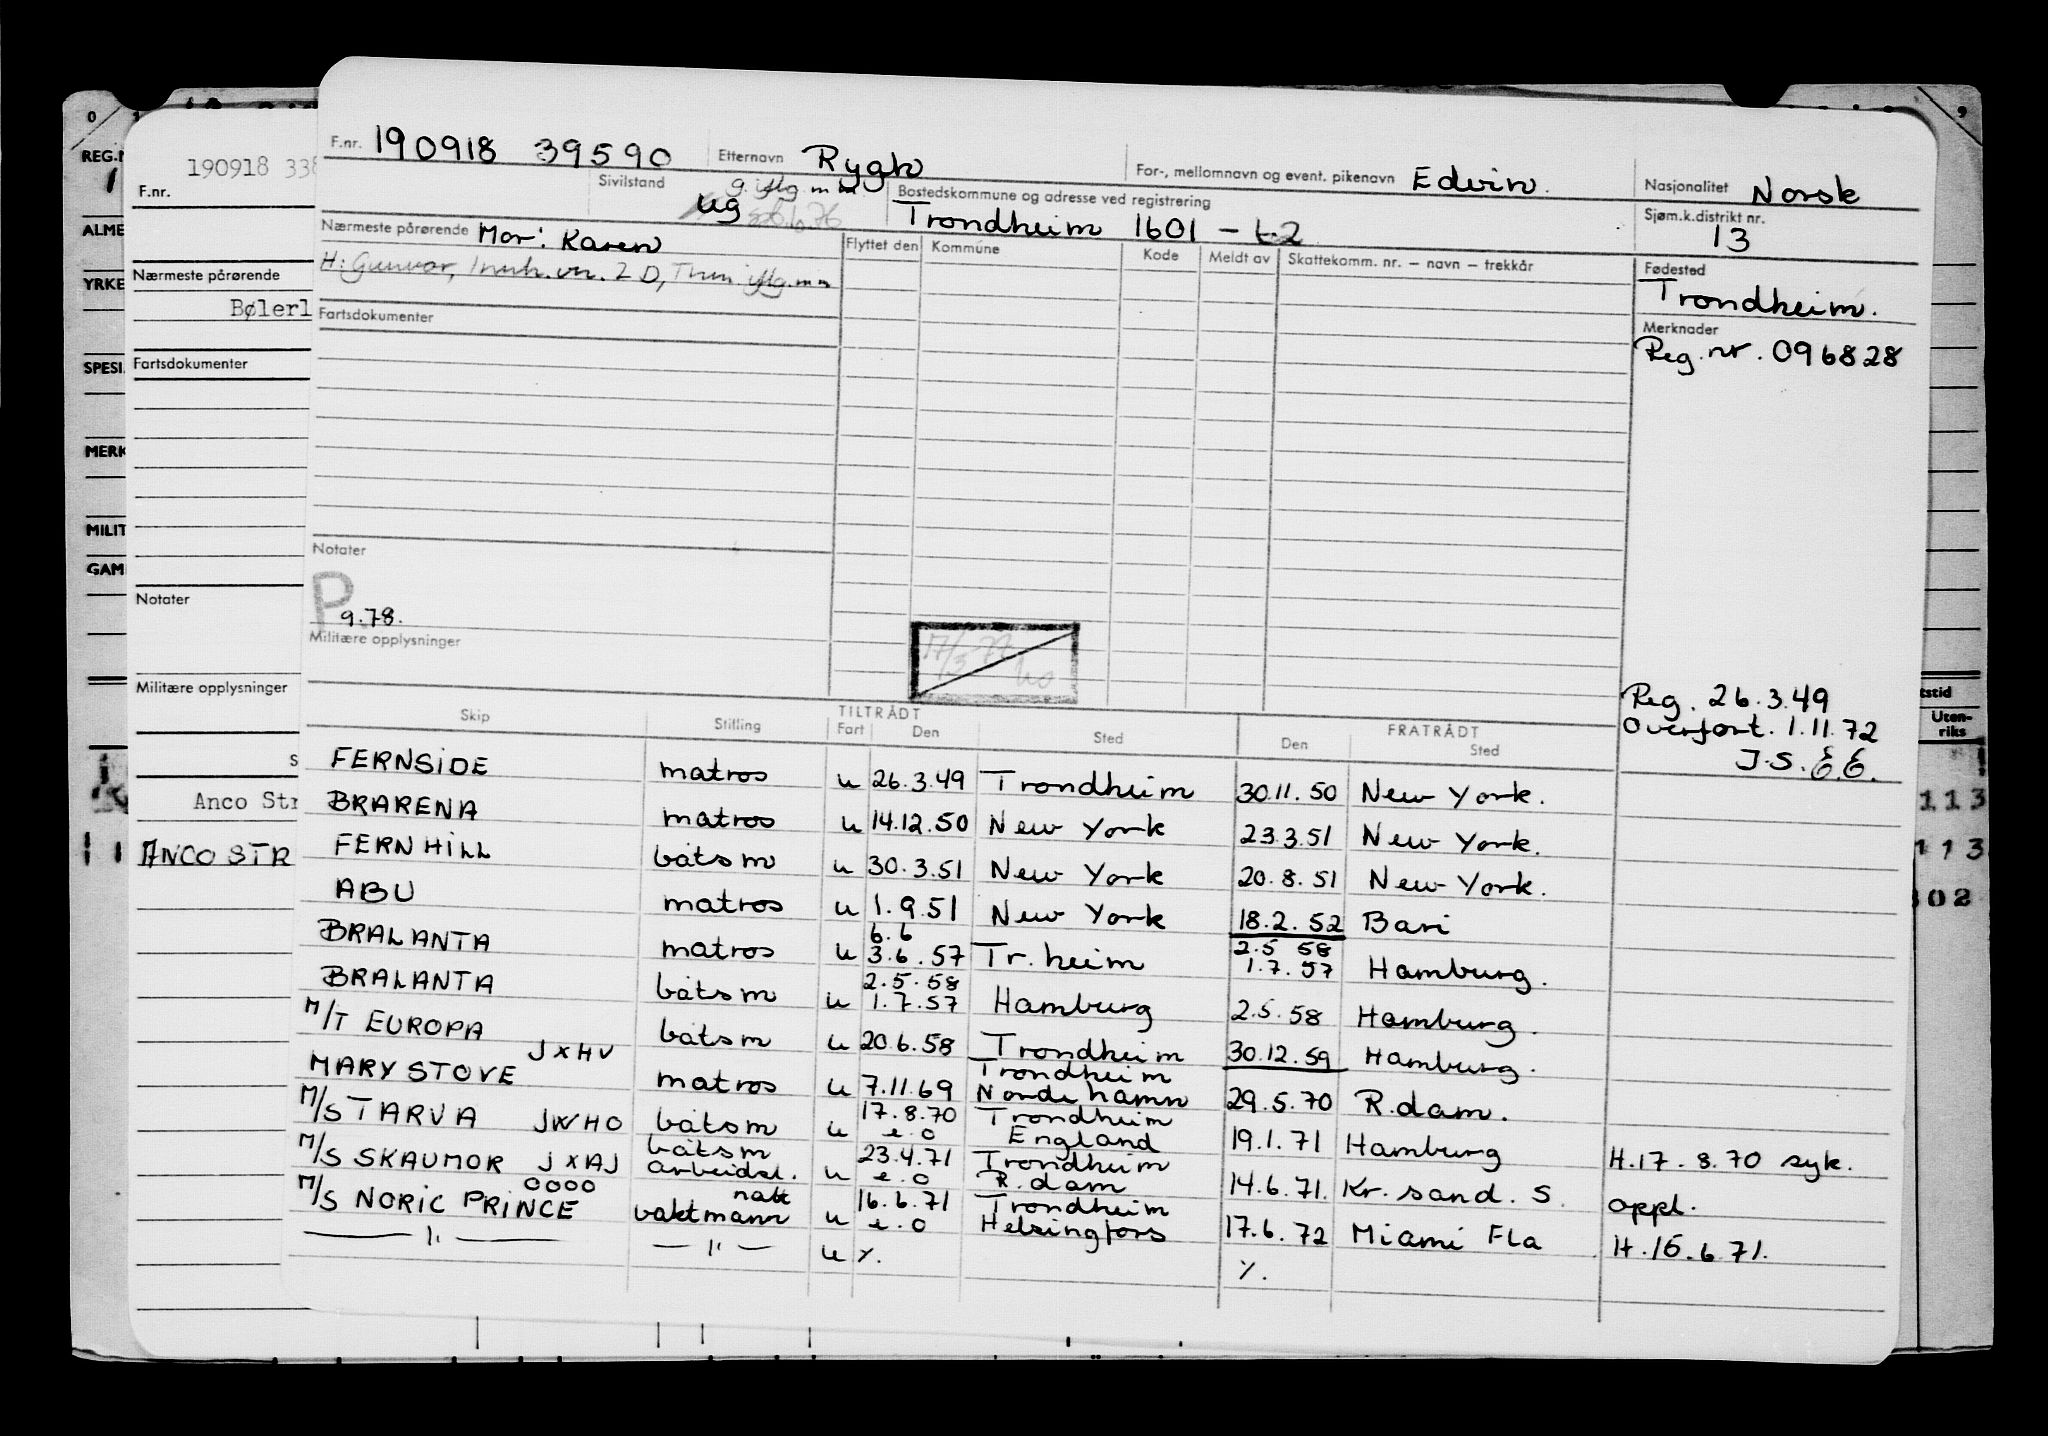 F.nr. 190918 39590 Etternavn Rygh For-, mellomnavn og event. pikenavn Edvin. Nasjonalitet Norsk
Sivilstand ug g. iflg. mm Bostedskommune og adresse ved registrering Trondheim 1601 - t2 Sjøm.k.distrikt nr. 13
Nærmeste pårørende Mor: Karen
H: Gunvor, 2 D, iflg. mm
Flyttet den Kommune Kode Meldt av Skattekomm. nr. – navn – trekkår
Fødested Trondheim.
Merknader
Reg. nr. 096828
Fartsdokumenter
Notater
P
9.78.
Militære opplysninger
17/3-77
Reg. 26.3.49
Overført. 1.11.72
J.S. E.E.
TILTRÅDT FRATRÅDT
Skip Stilling Fart Den Sted Den Sted
FERNSIDE matros u 26.3.49 Trondheim 30.11.50 New York.
BRARENA matros u 14.12.50 New York 23.3.51 New York.
FERNHILL båtsm u 30.3.51 New York 20.8.51 New York.
ABU matros u 1.9.51 New York 18.2.52 Bari
6.6 2.5 58
BRALANTA matros u 3.6.57 Tr.heim 1.7.57 Hamburg.
2.5.58
BRALANTA båtsm u 1.7.57 Hamburg 2.5.58 Hamburg.
M/T EUROPA JXHV båtsm u 20.6.58 Trondheim 30.12.59 Hamburg.
Trondheim
MARY STOVE matros u 7.11.69 Nordenhamn 29.5.70 R.dam.
17.8.70 Trondheim
M/S TARVA JWHO båtsm u e.o England 19.1.71 Hamburg H.17.8.70 syk.
båtsm 23.4.71 Trondheim
M/S SKAUMOR JXAJ arbeidsl. u e.o R.dam 14.6.71. Kr.sand.S. oppl.
OOOO natt 16.6.71 Trondheim
M/S NORIC PRINCE vaktmann u e.o Helsingfors 17.6.72 Miami Fla H.15.6.71.
— " — — " — u %. %.
190918 338
F.nr.
Nærmeste pårørende
Bølerl
Fartsdokumenter
Notater
Militære opplysninger
S
Anco Str
ANCO STR
0 1
REG.N
1
ALME
YRKE
SPESI
MERK
MILIT
GAM
9
tstid
Uten-
riks
113
113
302